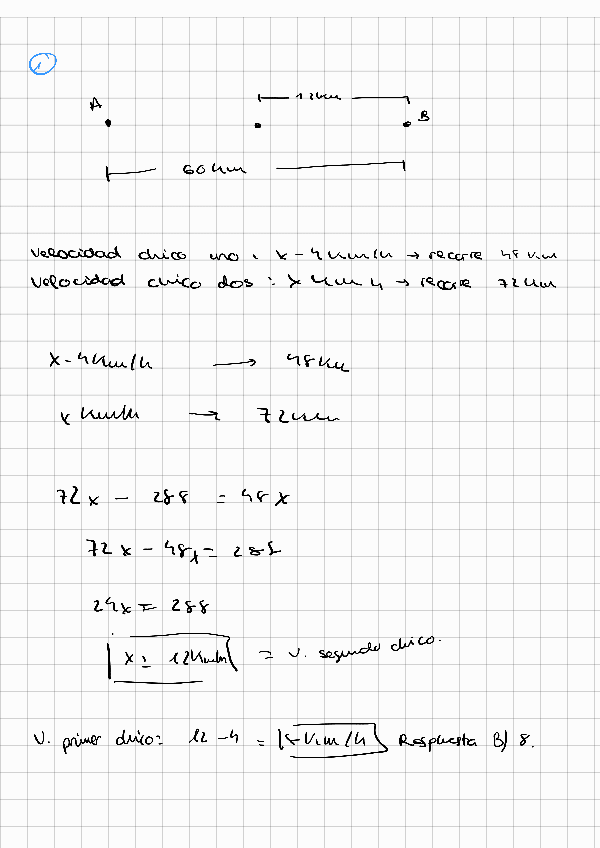 1
12km
A
B
60km
Velocidad chico uno : x - 4km/h → recorre 48 km
Velocidad chico dos : x km h → recorre 72 km
x - 4km/h → 48km
x km/h → 72km
72x - 288 = 48x
72x - 48x = 288
24x = 288
x = 12km/h = v. segundo chico.
V. primer chico: 12 - 4 = 8 km/h Respuesta B) 8.